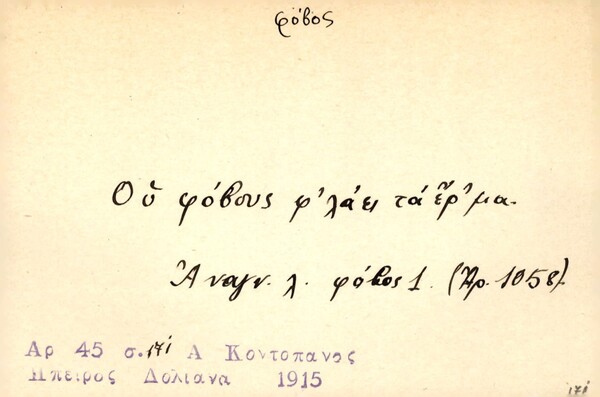 φόβος
Οὑ φόβους φ'λάει τά ἔρ'μα.
Ἀναγν. λ. φόβος 1. (Ἀρ. 1058).
Αρ 45 σ. 171 Α Κοντοπανος
Ηπειρος Δολιανα 1915
171